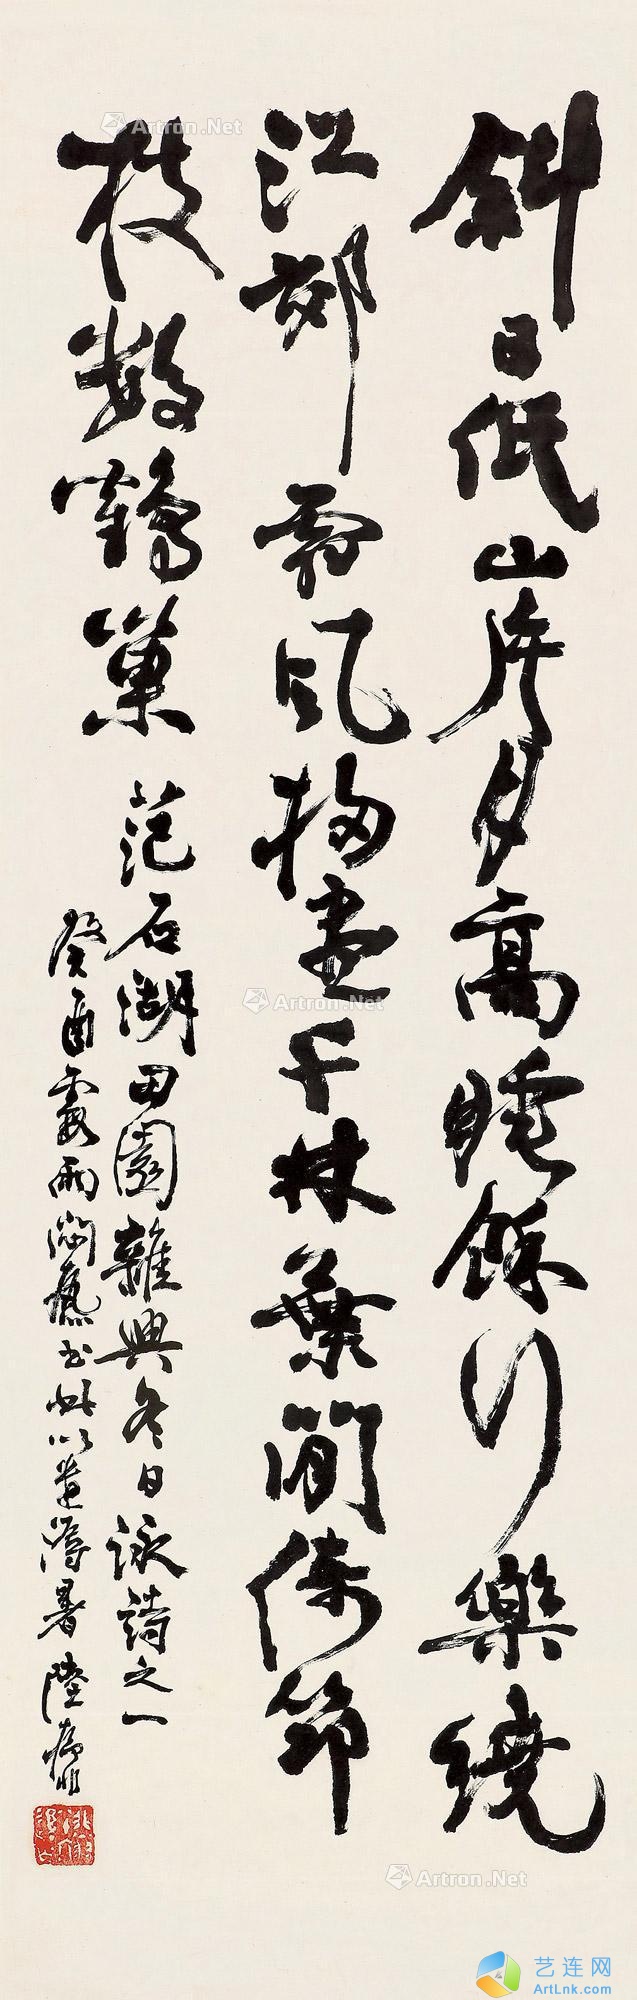 斜日低山片月高睡餘行樂繞
江郊霜風掃盡千林葉閒倚筇
枝數鶴巢
范石湖田園雜興冬日詠詩之一
癸酉霉雨悶熱書此以遣溽暑 陸儼
Artron.Net
Artron.Net
Artron.Net
艺连网
ArtLnk.com